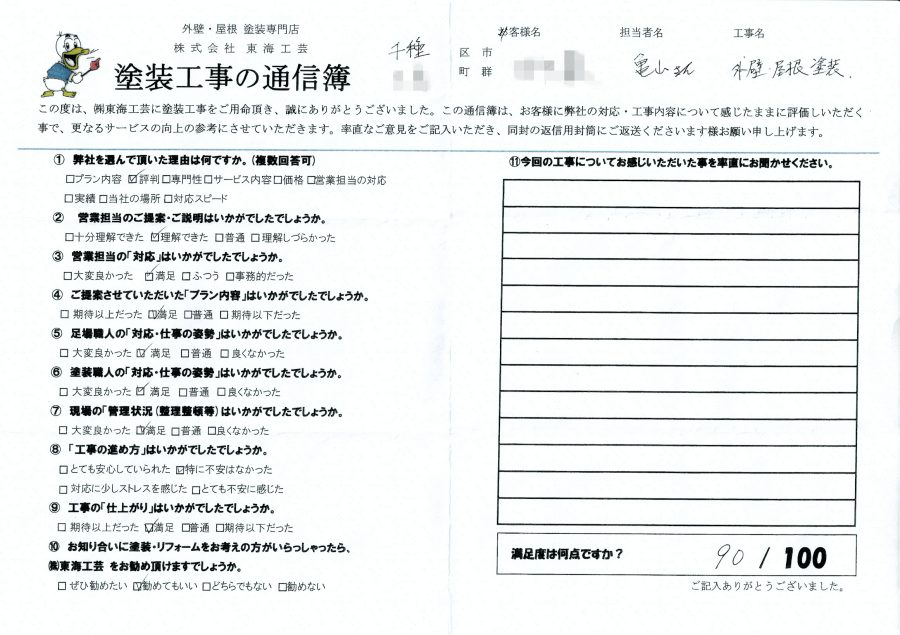 外壁・屋根 塗装専門店
株式会社 東海工芸
塗装工事の通信簿
千種
区 市
町 群
お客様名
担当者名
亀山さん
工事名
外壁・屋根塗装.
この度は、㈱東海工芸に塗装工事をご用命頂き、誠にありがとうございました。この通信簿は、お客様に弊社の対応・工事内容について感じたままに評価しいただく
事で、更なるサービスの向上の参考にさせていただきます。率直なご意見をご記入いただき、同封の返信用封筒にご返送くださいます様お願い申し上げます。
① 弊社を選んで頂いた理由は何ですか。(複数回答可)
□プラン内容 ☑評判 □専門性 □サービス内容 □価格 □営業担当の対応
□実績 □当社の場所 □対応スピード
② 営業担当のご提案・ご説明はいかがでしたでしょうか。
□十分理解できた ☑理解できた □普通 □理解しづらかった
③ 営業担当の「対応」はいかがでしたでしょうか。
□大変良かった ☑満足 □ふつう □事務的だった
④ ご提案させていただいた「プラン内容」はいかがでしたでしょうか。
□ 期待以上だった ☑満足 □普通 □期待以下だった
⑤ 足場職人の「対応・仕事の姿勢」はいかがでしたでしょうか。
□ 大変良かった ☑ 満足 □普通 □良くなかった
⑥ 塗装職人の「対応・仕事の姿勢」はいかがでしたでしょうか。
□ 大変良かった ☑ 満足 □普通 □良くなかった
⑦ 現場の「管理状況(整理整頓等)はいかがでしたでしょうか。
□ 大変良かった ☑満足 □普通 □良くなかった
⑧ 「工事の進め方」はいかがでしたでしょうか。
□とても安心していられた ☑特に不安はなかった
□ 対応に少しストレスを感じた □とても不安に感じた
⑨ 工事の「仕上がり」はいかがでしたでしょうか。
□ 期待以上だった ☑満足 □普通 □期待以下だった
⑩ お知り合いに塗装・リフォームをお考えの方がいらっしゃったら、
㈱東海工芸 をお勧め頂けますでしょうか。
□ぜひ勧めたい ☑勧めてもいい □どちらでもない □勧めない
⑪今回の工事についてお感じいただいた事を率直にお聞かせください。
満足度は何点ですか? 90 / 100
ご記入ありがとうございました。